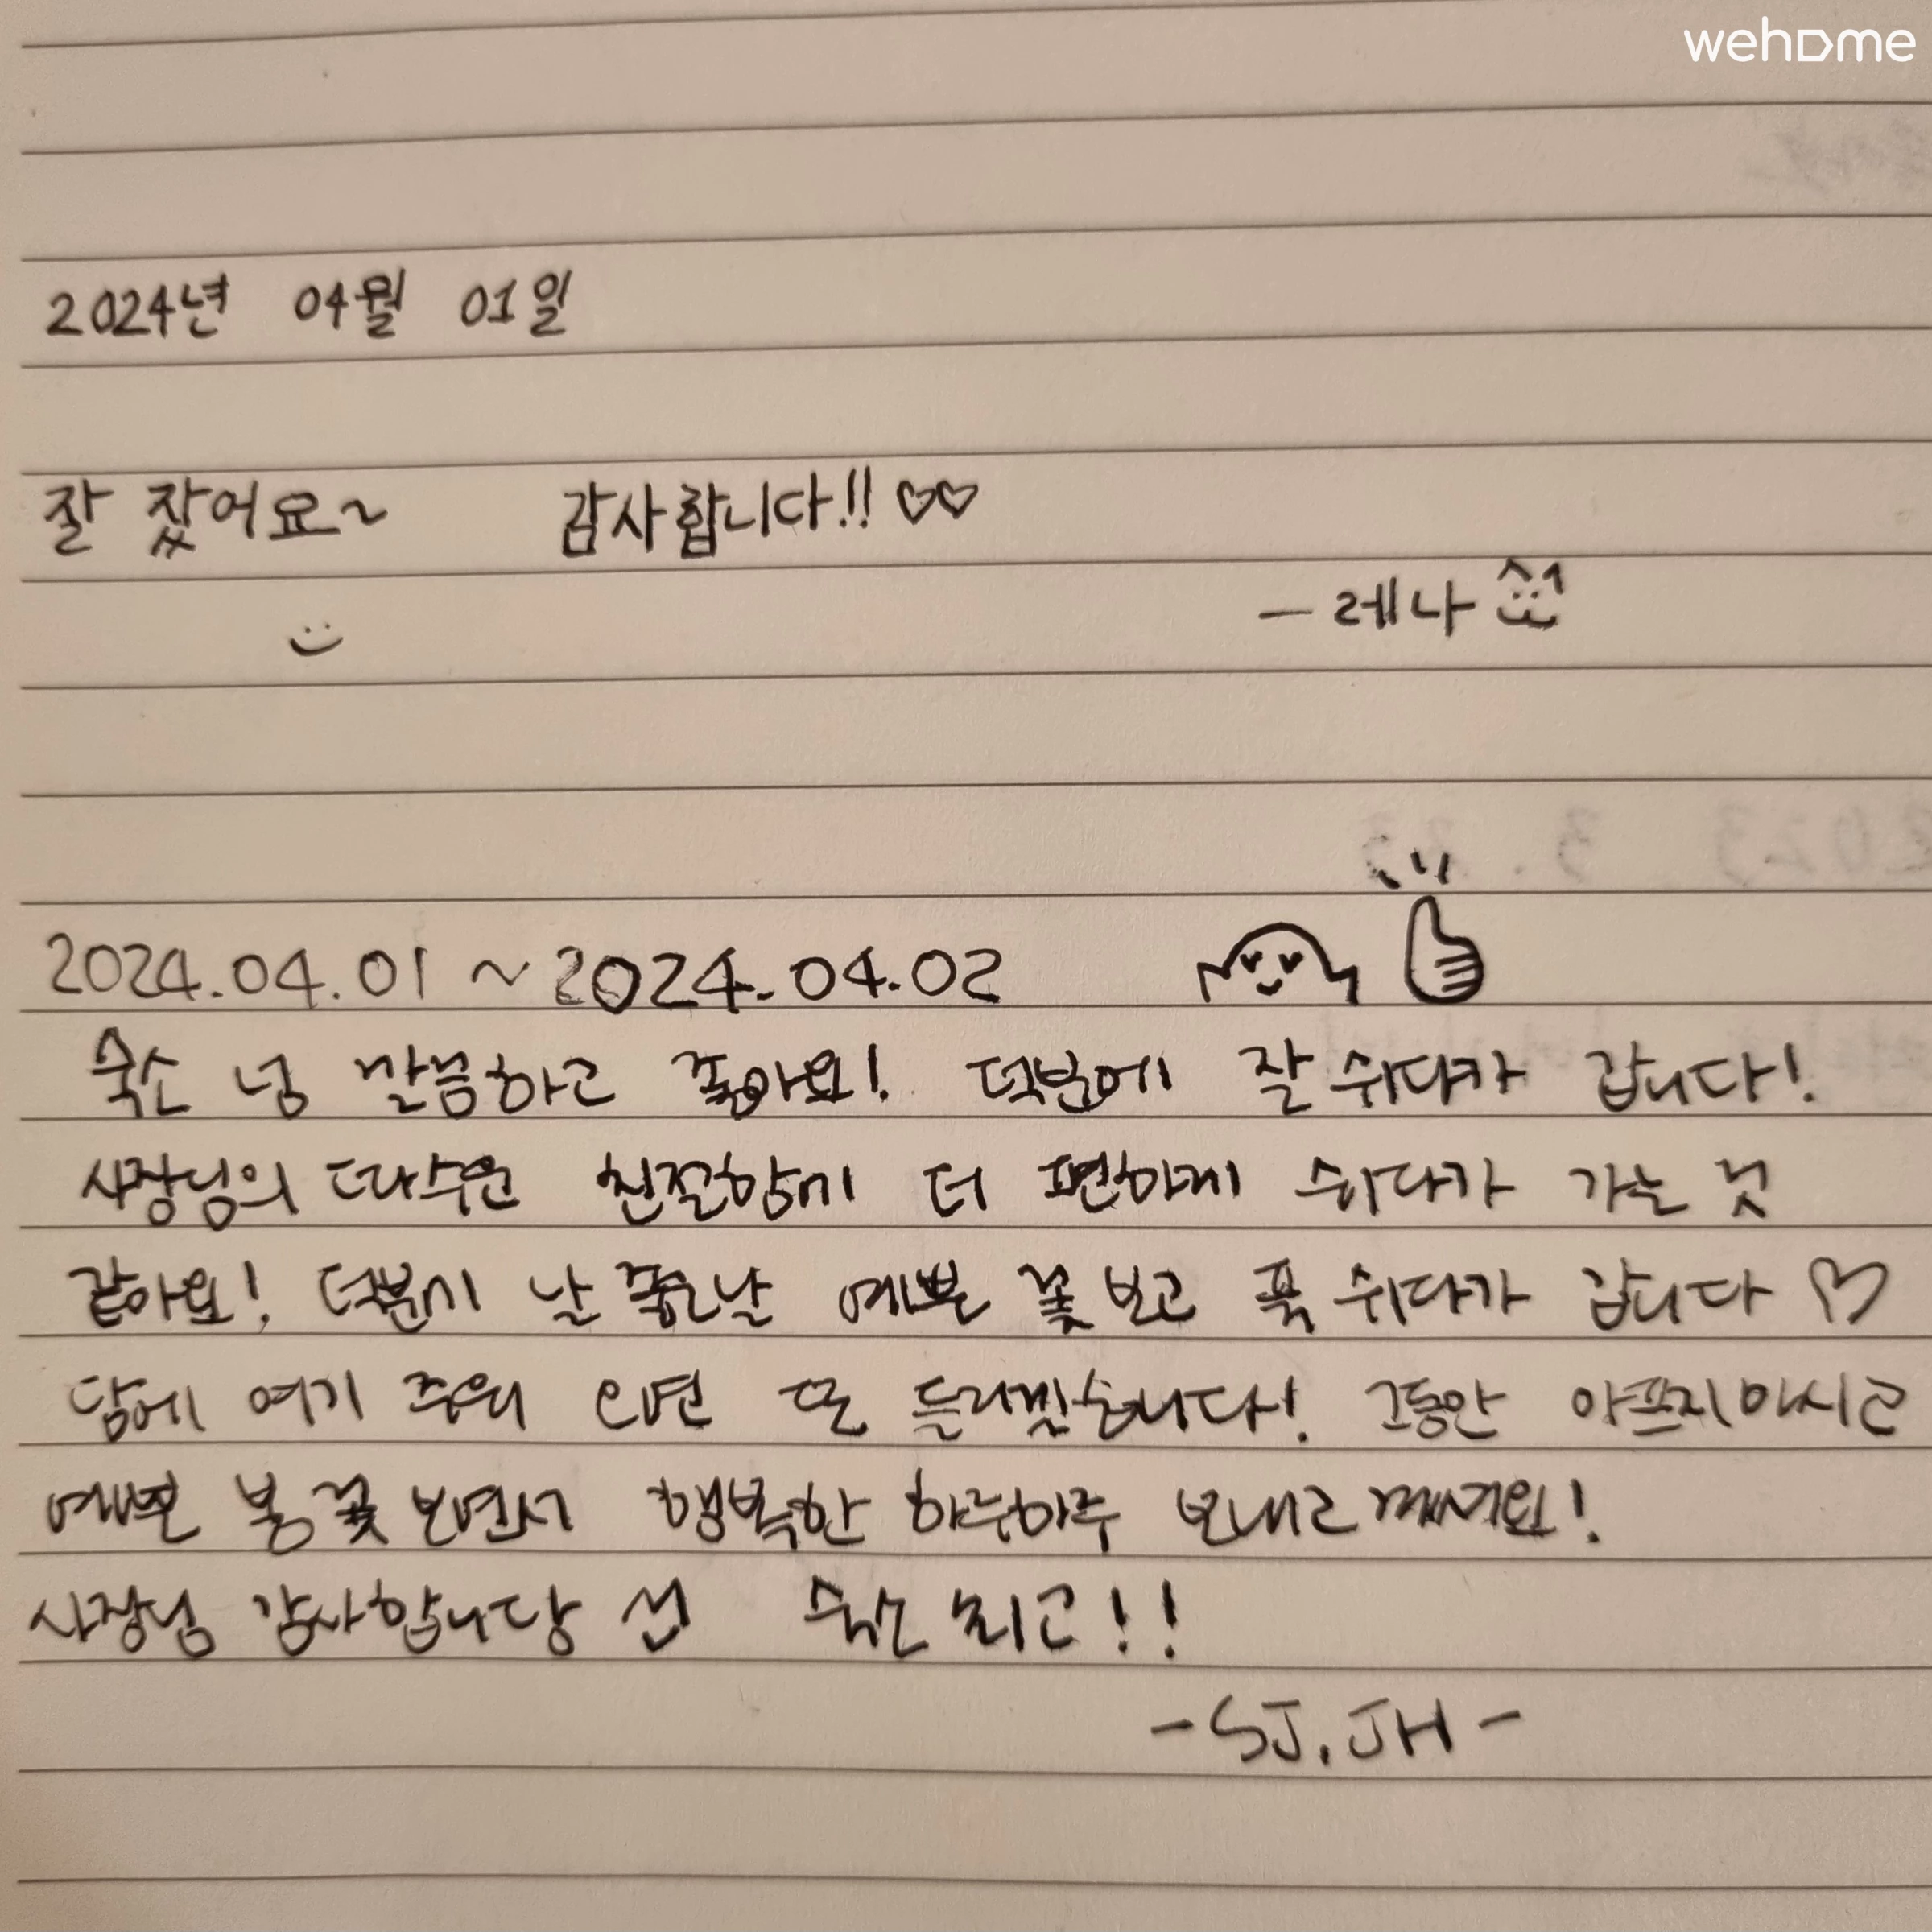 wehome
2024년 04월 01일
잘 잤어요~ 감사합니다!! ♡♡
- 레나
2024.04.01 ~ 2024.04.02
숙소 넘 깔끔하고 좋아요! 덕분에 잘 쉬다가 갑니다!
사장님의 따수운 친절함에 더 편하게 쉬다가 가는 것
같아요! 덕분에 날 좋은날 예쁜 꽃 보고 푹 쉬다가 갑니다 ♡
담에 여기 주위 오면 또 들리겠습니다! 그동안 아프지마시고
예쁜 봄 꽃 보면서 행복한 하루하루 보내고 계세요!
사장님 감사합니당 숙소 최고!!
- SJ. JH -